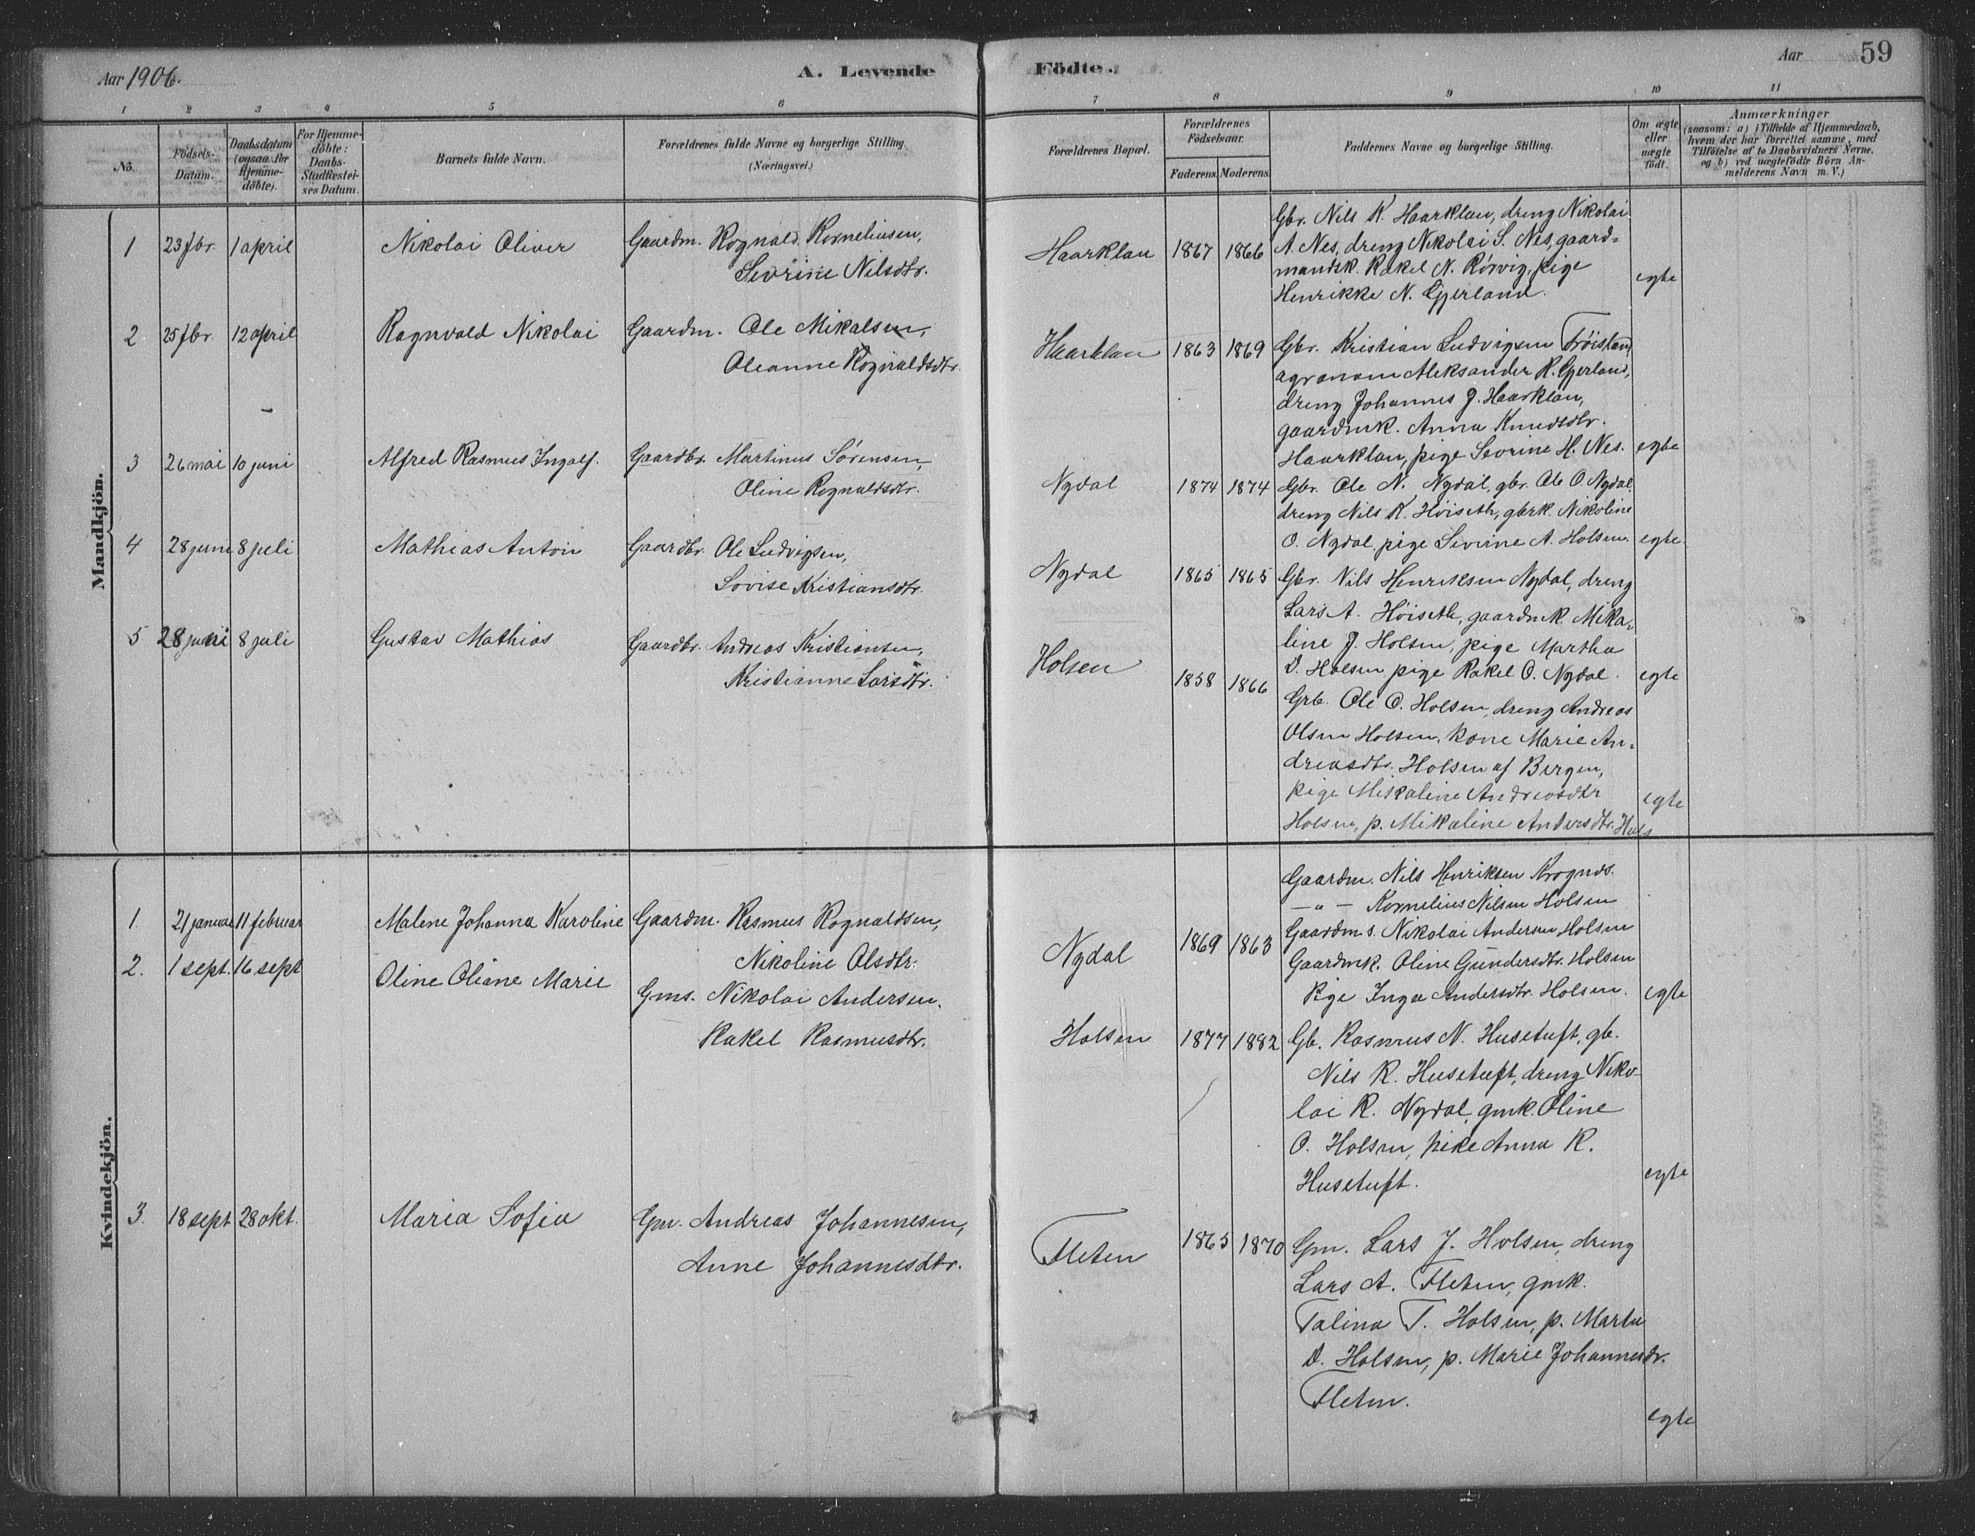 Aar 1906.
A. Levende
Födte.
Aar
59
1 2 3 4 5 6 7 8 9 10 11
No.
Födsels-
Datum.
Daabsdatum
(ogsaa for
Hjemme-
döbte).
For Hjemme-
döbte:
Daabs-
Stadfæstel-
ses Datum.
Barnets fulde Navn.
Forældrenes fulde Navne og borgerlige Stilling.
(Næringsvei.)
Forældrenes Bopæl.
Forældrenes
Födselsaar.
Faderens.
Moderens.
Faddernes Navne og borgerlige Stilling.
Om ægte
eller
uægte
født.
Anmærkninger
(saasom: a) i Tilfælde af Hjemmedaab,
hvem der har forrettet samme, med
Tilföielse af to Daabsvidners Navne.
og b) ved uægtefödte Börn An-
melderens Navn m. V.)
Mandkjön.
1 23 fbr. 1 april Nikolai Oliver
Gaardm. Rognald Korneliusen,
Sevrine Nilsdtr.
Haarklau 1867 1866
Gbr. Nils K. Haarklau, dreng Nikolai
A. Nes, dreng Nikolai S. Nes, gaard-
mandsk. Rakel N. Rörvig, pige
Henrikke N. Gjerland.
egte
2 25 fbr. 12 april Ragnvald Nikolai
Gaardm. Ole Mikalsen,
Oleanne Rognaldsdtr.
Haarklau 1863 1869
Gbr. Kristian Ludvigsen
agronom Aleksander R. Gjerland,
dreng Johannes J. Haarklau,
gaardmk. Anna Knudsdtr.
Haarklau, pige Sevrine H. Nes.
egte
3 26 mai 10 juni Alfred Rasmus Ingolf.
Gaardbr. Martinus Sørensen,
Oline Rognaldsdtr.
Nydal 1874 1874
Gbr. Ole N. Nydal, gbr. Ole O. Nydal,
dreng Nils K. Høiseth, gbrk. Nikoline
O. Nydal, pige Sevrine A. Holsen.
egte.
4 28 juni 8 juli Mathias Anton
Gaardbr. Ole Ludvigsen,
Lovise Kristiansdtr.
Nydal 1865 1865
Gbr. Nils Henriksen Nydal, dreng
Lars A. Høiseth, gaardmk. Mika-
line J. Holsen, pige Martha
D. Holsen pige Rakel O. Nydal.
egte
5 28 juni 8 juli Gustav Mathias
Gaardbr. Andreas Kristiansen,
Kristianne Larsdtr.
Holsen 1858 1866
Grb. Ole O. Holsen, dreng Andreas
Olsen Holsen, kone Marie An-
dreasdtr. Holsen af Bergen,
pige Mikaline Andreasdtr
Holsen, p. Mikaline Andersdtr.
egte
Kvindekjön.
1. 21 januar 11 februar Malene Johanna Karoline
Gaardm. Rasmus Rognaldsen,
Nikoline Olsdtr.
Nydal 1869 1863
Gaardm. Nils Henriksen
— " — Kornelius Nilsen Holsen
Gaardm s. Nikolai Andersen Holsen
Gaardmk. Oline Gundersdtr. Holsen
Pige Inga Andersdtr. Holsen.
egte
2. 1 sept. 16 sept Oline Oliane Marie
Gms. Nikolai Andersen.
Rakel Rasmusdtr.
Holsen 1877 1882
Gb. Rasmus N. Husetuft, gb.
Nils R. Husetuft, dreng Niko-
lai R. Nydal, gmk. Oline
O. Holsen, pike Anna R.
Husetuft.
egte
3. 18 sept 28 okt. Maria Sofia
Gm. Andreas Johannesen,
Anne Johannesdtr.
Fleten 1865 1870
Gm. Lars J. Holsen, dreng
Lars A. Fleten, gmk.
Talina T. Holsen, p. Marta
D. Holsen, p. Marie Johannesdtr.
Fleten.
egte